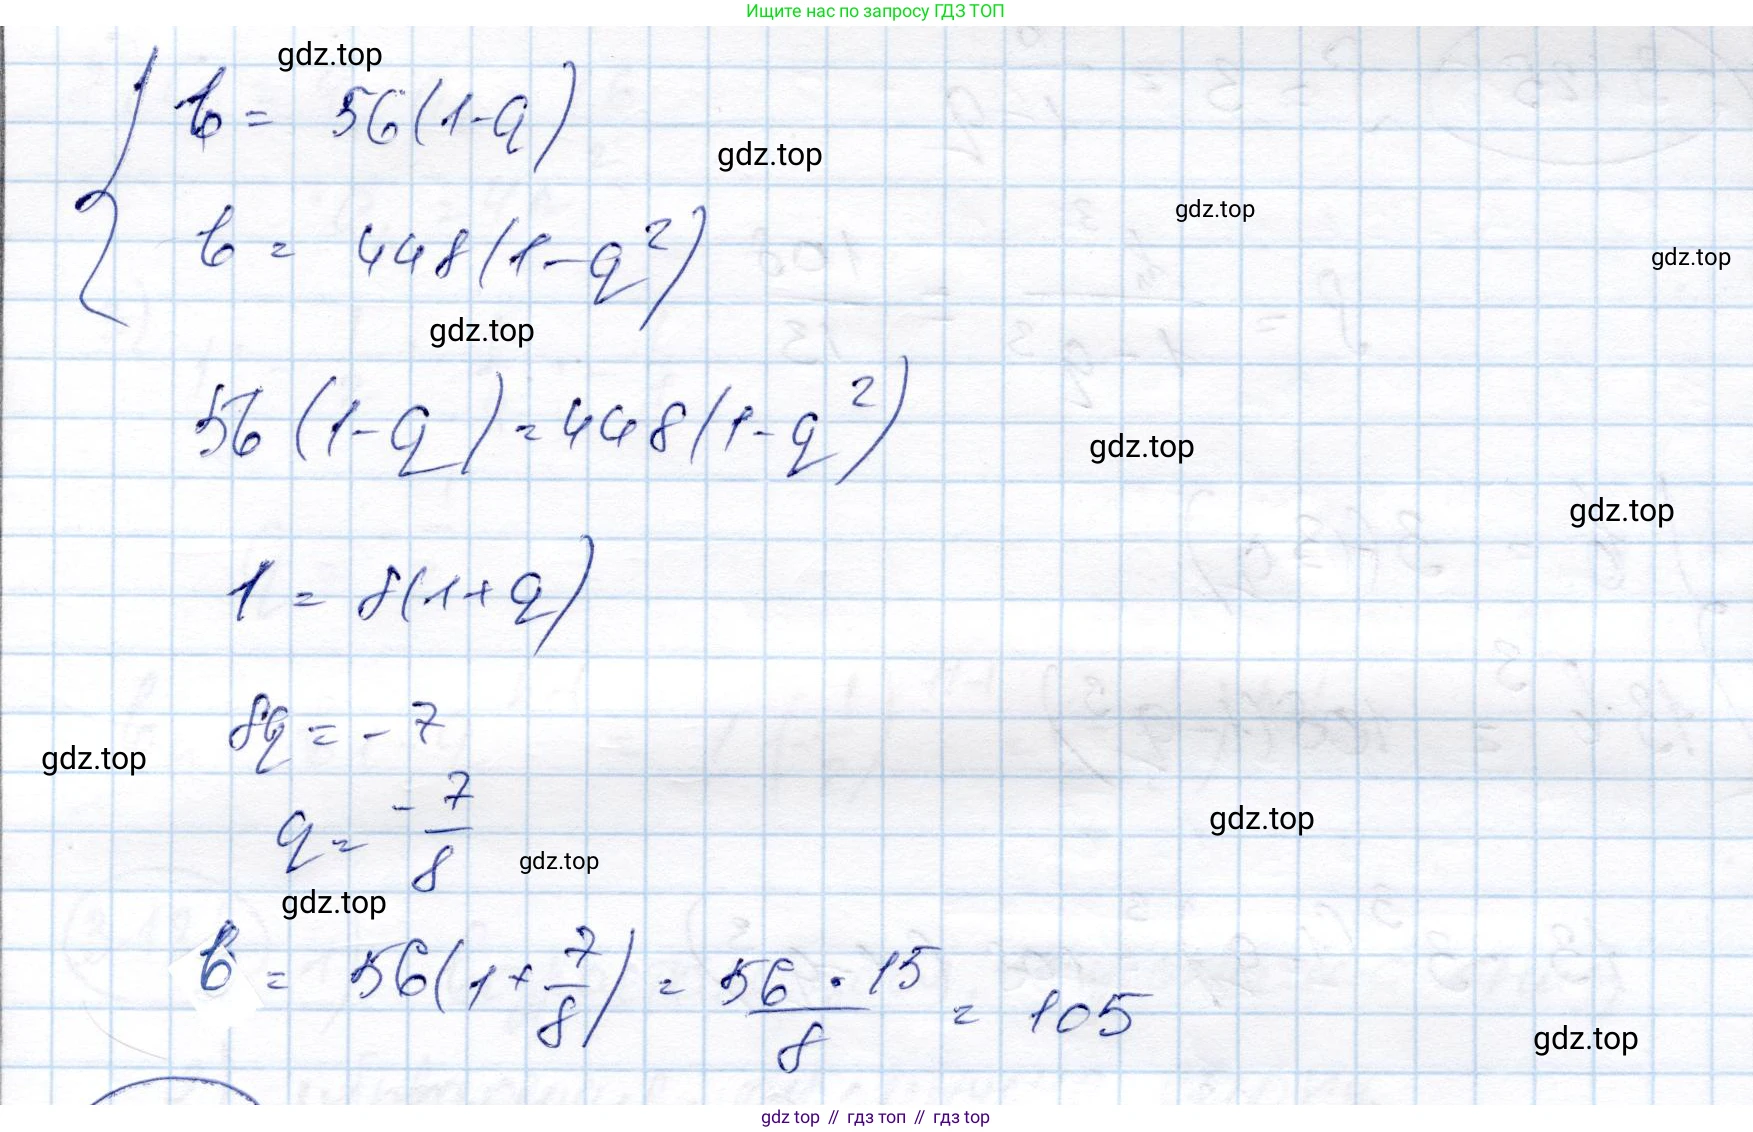 Ищите нас по запросу ГДЗ ТОП
gdz.top
b = 56(1-q)
gdz.top
gdz.top
b = 448(1-q²)
gdz.top
gdz.top
56(1-q) = 448(1-q²)
gdz.top
gdz.top
1 = 8(1+q)
8q = -7
gdz.top
q = -7/8
gdz.top
gdz.top
gdz.top
b = 56(1+7/8) = 56·15/8 = 105
gdz.top
gdz top // гдз топ // gdz top